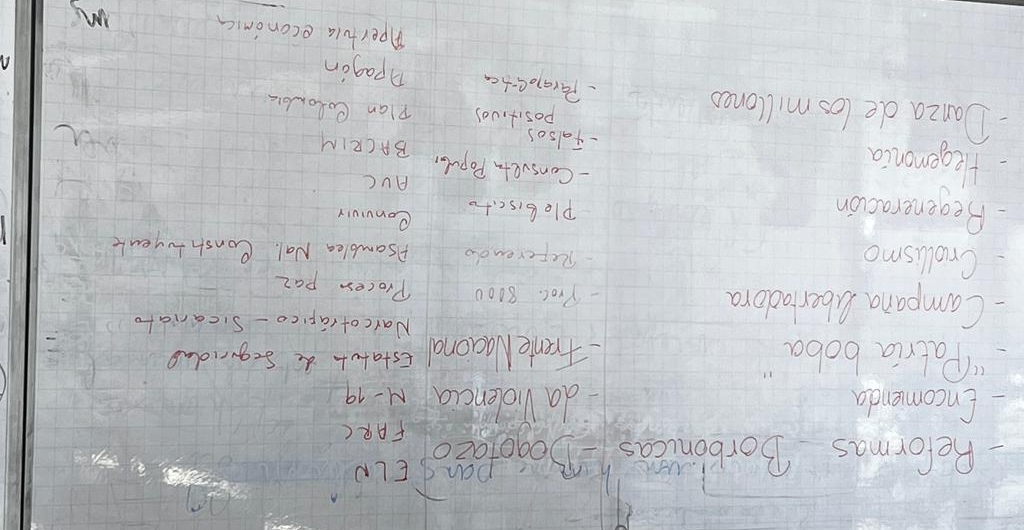 - Reformas Borbonicas
- Encomienda
- "Patria boba"
- Campaña libertadora
- Criollismo
- Regeneración
- Hegemonia
- Danza de los millones
- Bogotazo
- La Violencia
- Frente Nacional
- Proc. 8000
- Referendo
Plebiscito
- Consulta Popular
- Falsos
positivos
- Parapolítica
ELN
FARC
M-19
Estatuto de Seguridad
Narcotráfico - Sicariato
Proceso paz
Asamblea Nal. Constituyente
Convivir
AUC
BACRIM
Plan Colombia
Apagón
Apertura económica